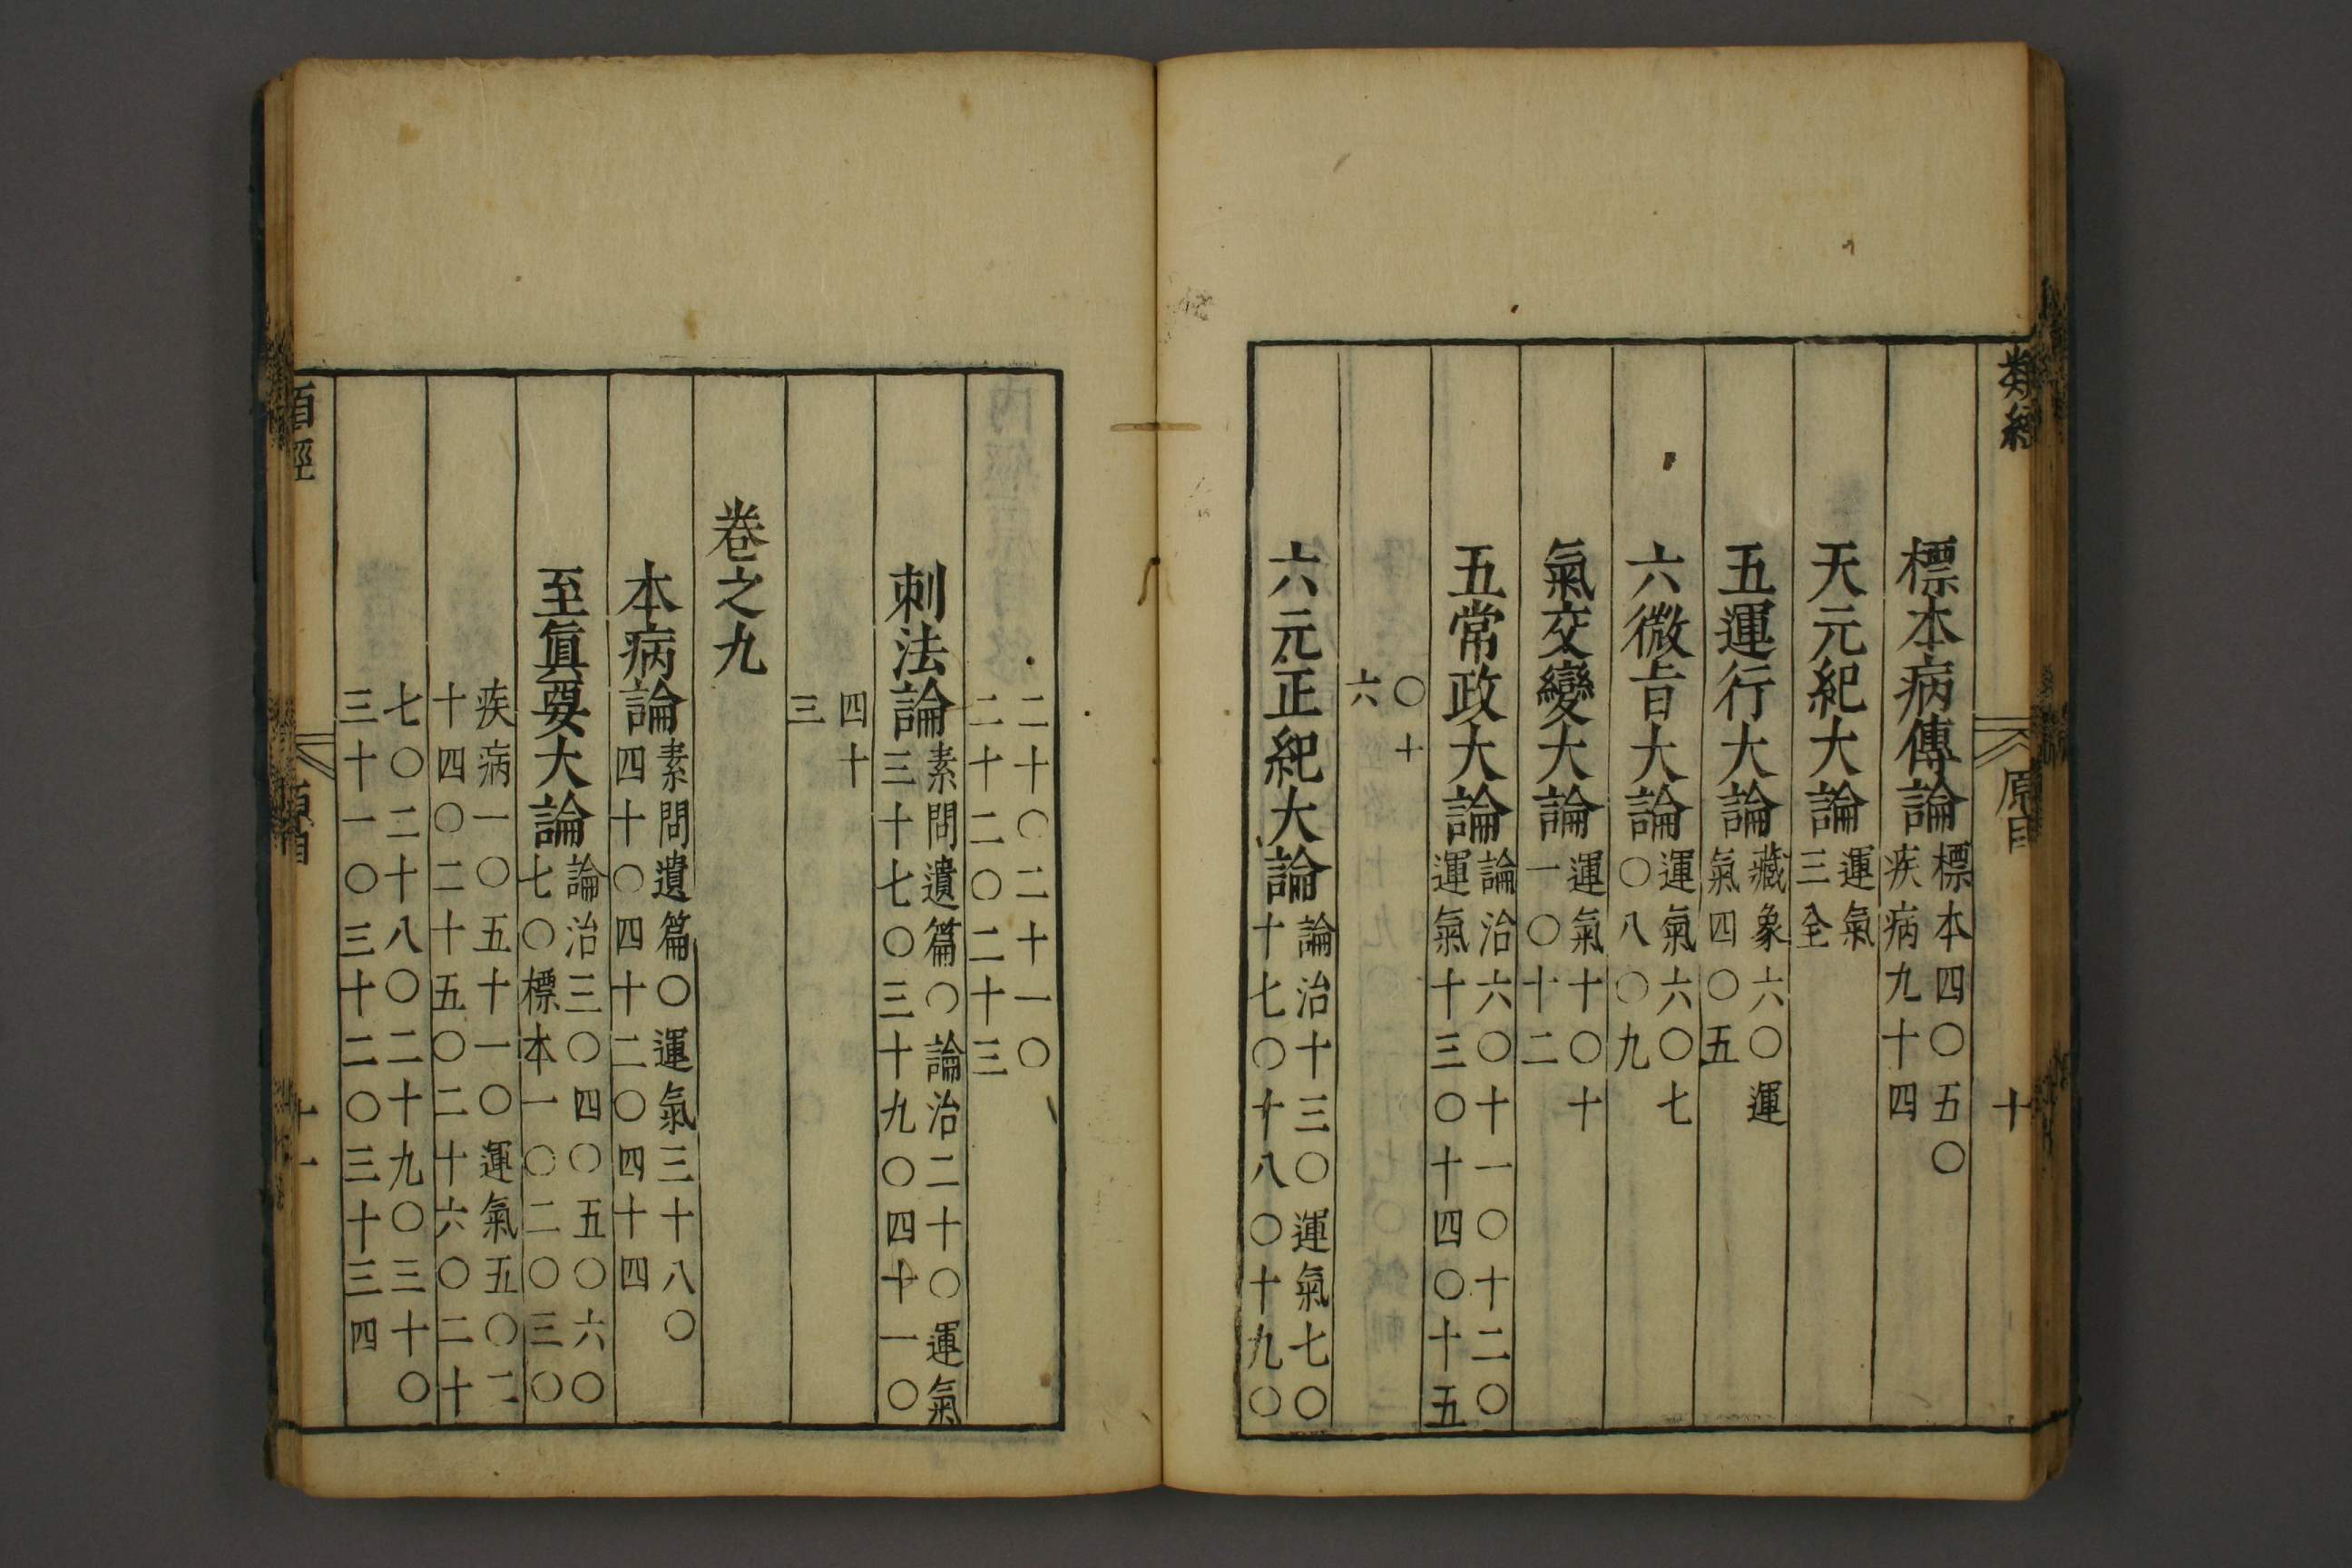 類經
原目
十
標本病傳論
標本四〇五〇
疾病九十四
天元紀大論
運氣
三全
五運行大論
藏象六〇運
氣四〇五
六微旨大論
運氣六〇七
〇八〇九
氣交變大論
運氣十〇十
一〇十二
五常政大論
論治六〇十一〇十二〇
運氣十三〇十四〇十五
〇十
六
六元正紀大論
論治十三〇運氣七〇
十七〇十八〇十九〇
二十〇二十一〇
二十二〇二十三
刺法論
素問遺篇〇論治二十〇運氣
三十七〇三十九〇四十一〇
四十
三
卷之九
本病論
素問遺篇〇運氣三十八〇
四十〇四十二〇四十四
至眞要大論
論治三〇四〇五〇六〇
七〇標本一〇二〇三〇
疾病一〇五十一〇運氣五〇二
十四〇二十五〇二十六〇二十
七〇二十八〇二十九〇三十〇
三十一〇三十二〇三十三四
十一